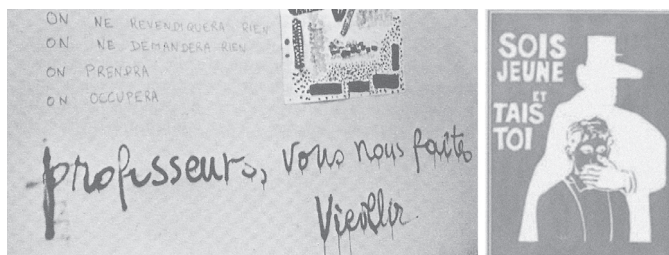 ON NE REVENDIQUERA RIEN
ON NE DEMANDERA RIEN
ON PRENDRA
ON OCCUPERA
professeurs, vous nous faites
Vieillir.
SOIS
JEUNE
ET
TAIS
TOI